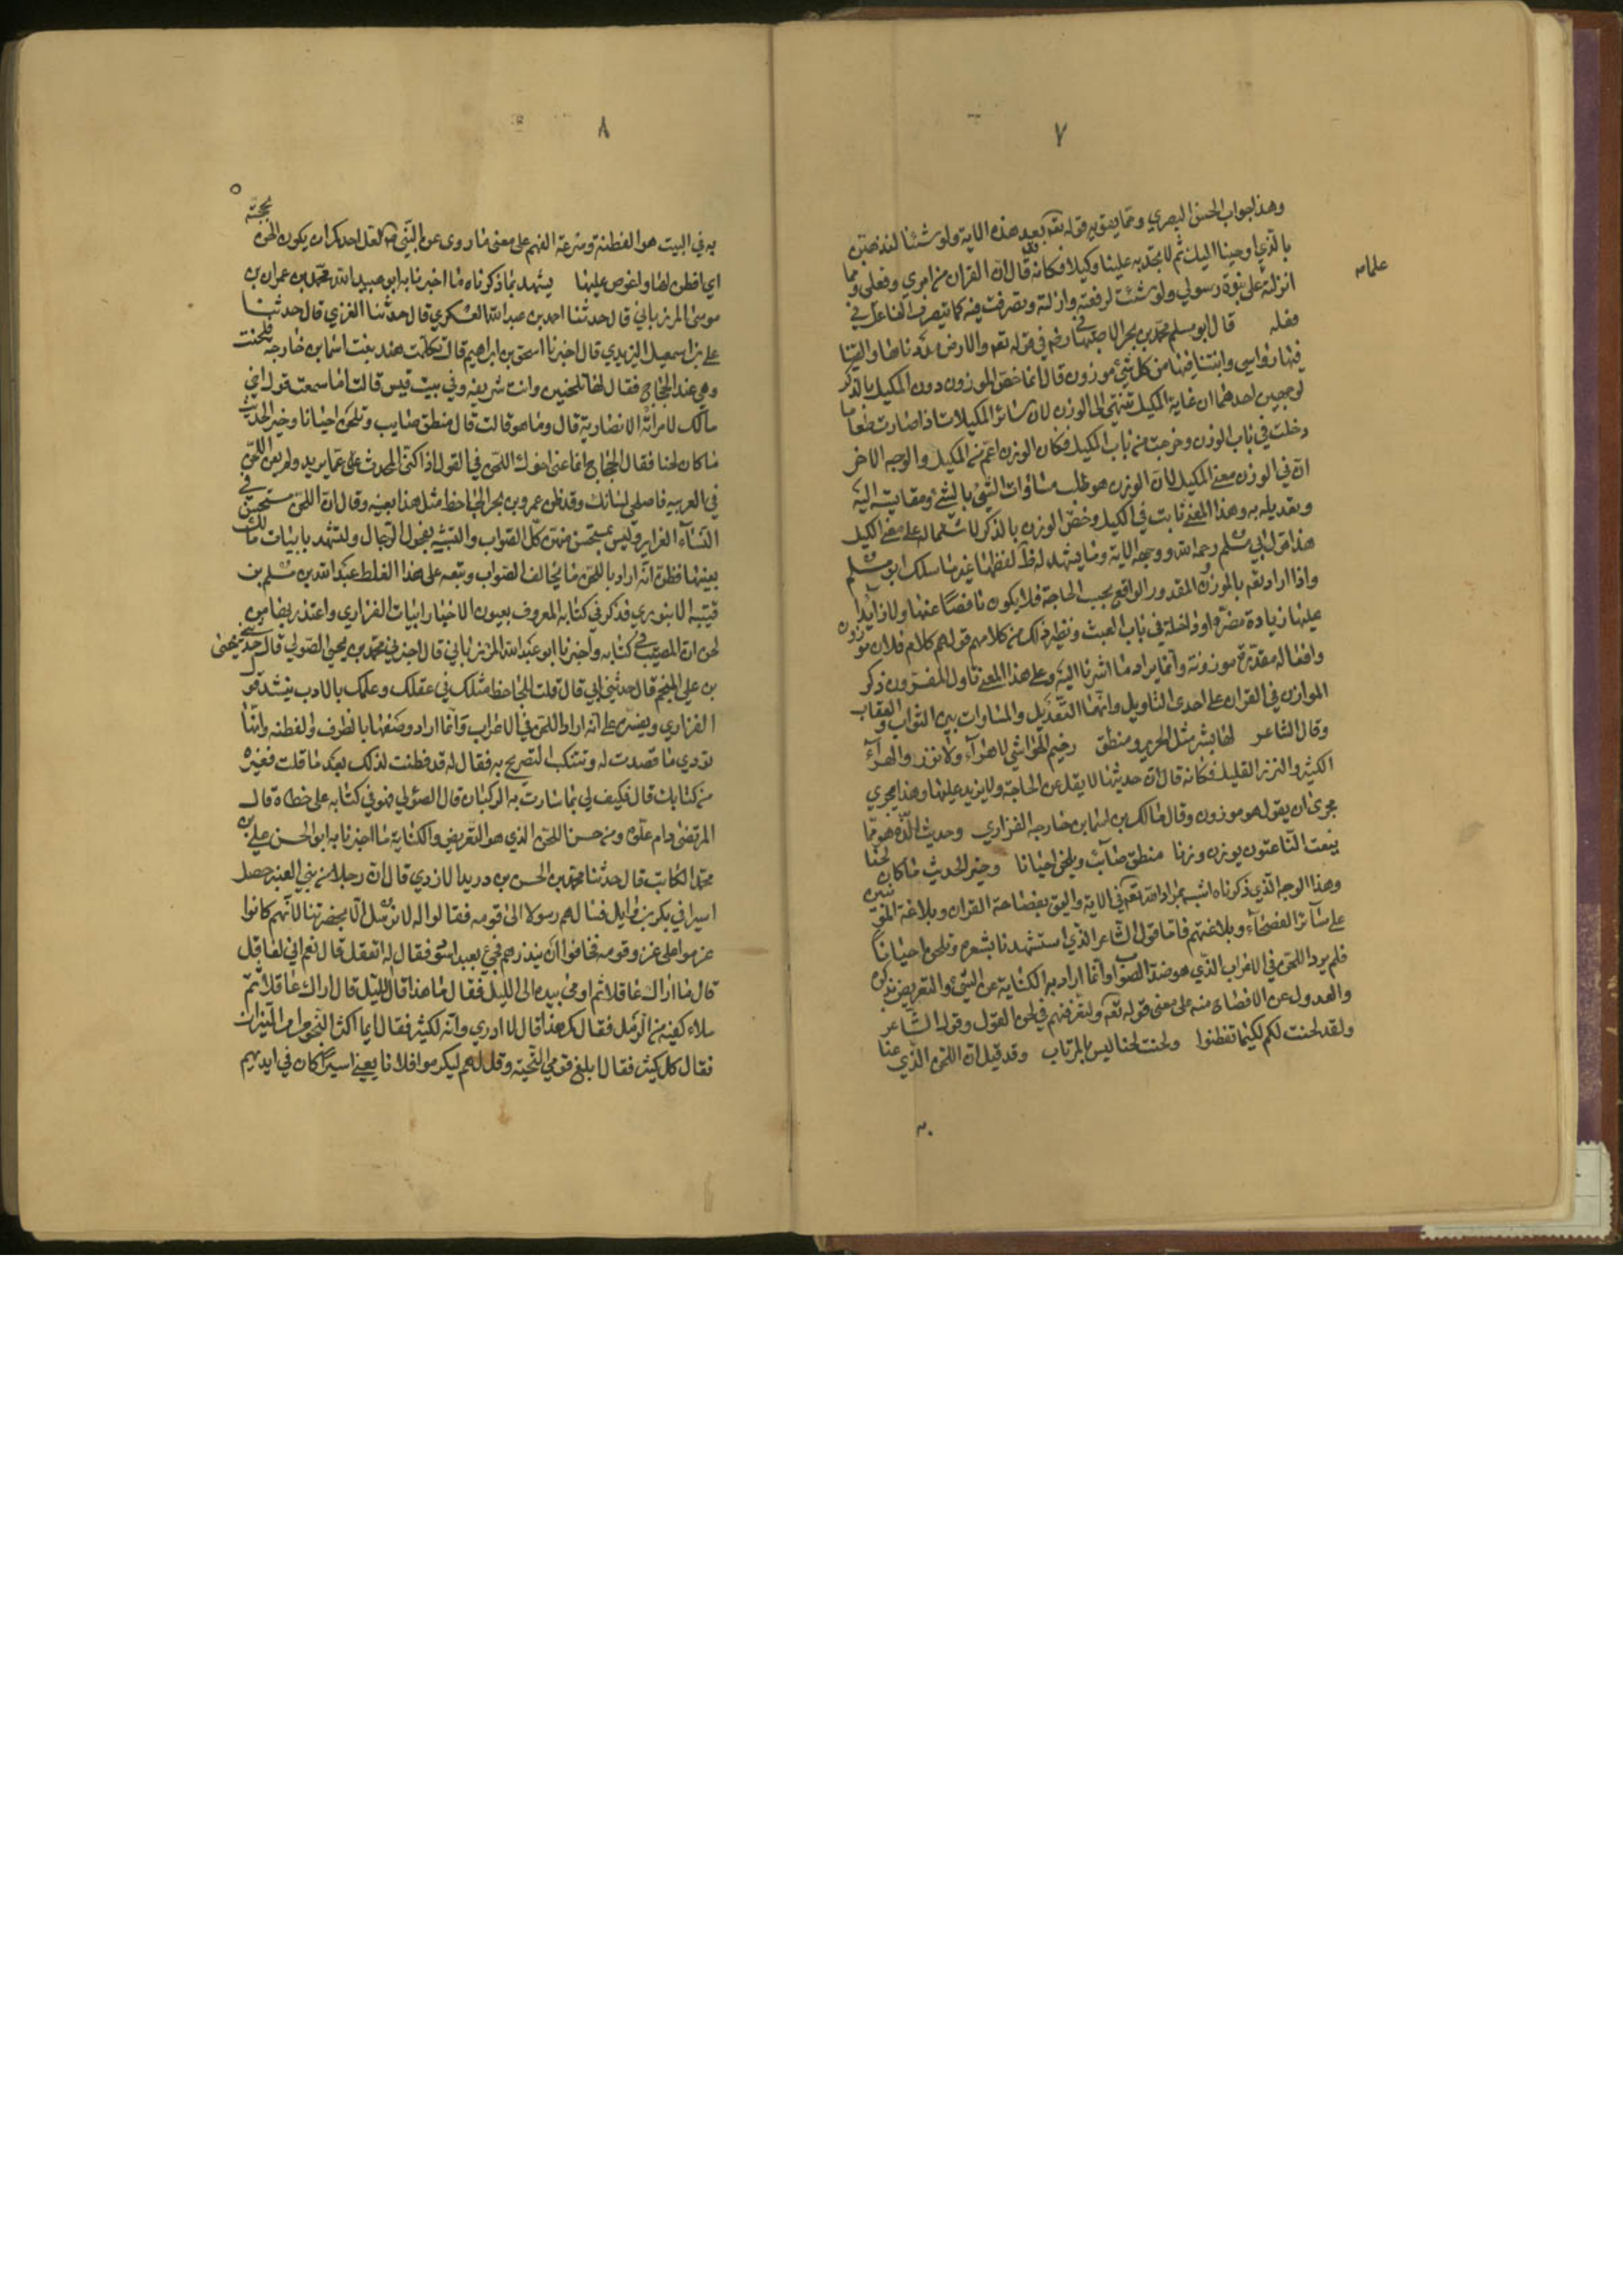 ٧
وهذا جواب الحسن البصري ومما يقويه قوله تعه بعد هذه الاية ولو شئنا لنذهبن
بالذي اوحينا اليك ثم لا تجد به علينا وكيلا فكانه تعه قال ان القران من امري وفعلي ومما
علامه
انزلته على نبوة رسولي ولو شئت لرفعته وازلته وتصرفت فيه كما يتصرف الفاعل في
فعله قال ابو مسلم محمد بن بحر الاصبهاني رضه في قوله تعه والارض مددناها والقينا
فيها رواسي وانبتنا فيها من كل شئ موزون قال انما خص الموزون دون المكيل بالذكر
لوجهين احدهما ان غاية المكيل تنتهي الى الوزن لان سائر المكيلات اذا صارت طعاما
دخلت في باب الوزن وخرجت من باب المكيل فكان الوزن اعم من المكيل والوجه الاخر
ان في الوزن معنى المكيل لان الوزن هو طلب مساوات الشئ بالشئ ومقايسته اليه
وتعديله به وهذا المعنى ثابت في الكيل وخص الوزن بالذكر لاشتماله على معنى الكيل
هذا قول ابي مسلم رحمه الله ووجه الاية وما يشهد له ظاهر لفظها غير ما سلك ابو مسلم
وانما اراد تعه بالموزون المقدور الواقع بحسب الحاجة فلا يكون ناقصا عنها ولا زايدا
عليها زيادة مضرة او داخلة في باب العبث ونظير ذلك من كلامهم قولهم كلام فلان موزون
وافعاله مقدرة موزونة وانما يراد ما اشرنا اليه وعلى هذا المعنى تاول المفسرون ذكر
الموازين في القران على احدى التاويل وانها التعديل والمساوات بين الثواب والعقاب
وقال الشاعر لها بشر مثل الحرير ومنطق رخيم الحواشي لا هراء ولا نزر والهراء
الكثير والنزر القليل فكانه قال ان حديثها لا يقل عن الحاجة ولا يزيد عليها وهذا يجري
مجرى ان يقول هو موزون وقال مالك بن اسما بن خارجه الفزاري وحديث الذه هو مما
ينعت الناعتون يوزن وزنا منطق صائب ويلحن احيانا وخير الحديث ما كان لحنا
وهذا الوجه الذي ذكرناه اشبه بمراد الله تعه في الاية واليق بفصاحة القران وبلاغة الموفيين
على سائر الفصحاء وبلاغتهم فاما قول الشاعر الذي استشهدنا بشعره وتلحن احيانا
فلم يرد اللحن في الاعراب الذي هو ضد الصواب وانما اراد به الكناية عن الشئ والتعريض بذكره
والعدول عن الافصاح منه على معنى قوله تعه ولتعرفنهم في لحن القول وقول الشاعر
ولقد لحنت لكم لكيما تفطنوا ولحنت لحنا ليس بالمرتاب وقد قيل ان اللحن الذي عنا
٨
به في البيت هو الفطنة وسرعة الفهم على معنى ما روي عن النبي ص لعل احدكم ان يكون الحن بحجته
اي افطن لها واغوص عليها يشهد بما ذكرناه ما اخبرنا به ابو عبيد الله محمد بن عمران بن
موسى المرزباني قال حدثنا احمد بن عبد الله العسكري قال حدثنا العنزي قال حدثنا
علي بن اسمعيل اليزيدي قال اخبرنا اسحق بن ابراهيم قال تكلمت هند بنت اسما بن خارجه فلحنت
وهي عند الحجاج فقال لها تلحنين وانت شريفه وفي بيت قيس قالت اما سمعت قول اخي
مالك لامراته الانصارية قال وما هو قالت قال منطق صايب وتلحن احيانا وخير الحديث
ما كان لحنا فقال الحجاج انما عنى اخوك اللحن في القول اذا كنى المحدث عما يريد ولم يعن اللحن
في العربيه فاصلحي لسانك وقد ظن عمرو بن بحر الجاحظ مثل هذا بعينه وقال ان اللحن مستحسن في
النساء الغراير وليس بمستحسن منهن كل الصواب والتشبه بفحول الرجال واستشهد بابيات مالك
بعينها فظن انه اراد باللحن ما يخالف الصواب وتبعه على هذا الغلط عبد الله بن مسلم بن
قتيبه الدينوري فذكر في كتابه المعروف بعيون الاخبار ابيات الفزاري واعتذر بها من
لحن ان اصيب في كتابه واخبرنا ابو عبد الله المرزباني قال اخبرني محمد بن يحيى الصولي قال حدثني يحيى
بن علي المنجم قال حدثني ابي قال قلت للجاحظ مثلك في عقلك وعلمك بالادب ينشد قول
الفزاري ويفسره على انه اراد اللحن في الاعراب وانما اراد وصفها بالظرف والفطنه وانها
توري ما قصدت له وتتنكب التصريح به فقال له قد فطنت لذلك بعد ما قلت فغيره
من كتابك قال فكيف لي بما سارت به الركبان قال الصولي فهو في كتابه على خطاه قال
المرتضى دام علوه ومن حسن اللحن الذي هو التعريض والكناية ما اخبرنا به ابو الحسن علي بن
محمد الكاتب قال حدثنا محمد بن الحسن بن دريد الازدي قال ان رجلا من بني العنبر حصل
اسيرا في بكر بن وايل فسالهم رسولا الى قومه فقالوا له لا ترسل الا بحضرتنا لانهم كانوا
عزموا على غزو قومه فخافوا ان ينذرهم فجئ بعبد اسود فقال له اتعقل قال نعم اني لعاقل
قال ما اراك عاقلا ثم اومى بيده الى الليل فقال ما هذا قال الليل قال اراك عاقلا ثم
ملاء كفيه من الرمل فقال كم هذا قال لا ادري وانه لكثير فقال ايما اكثر النجوم ام النيران
فقال كل كثير فقال ابلغ قومي التحية وقل لهم ليكرموا فلانا يعني اسيرا كان في ايديهم